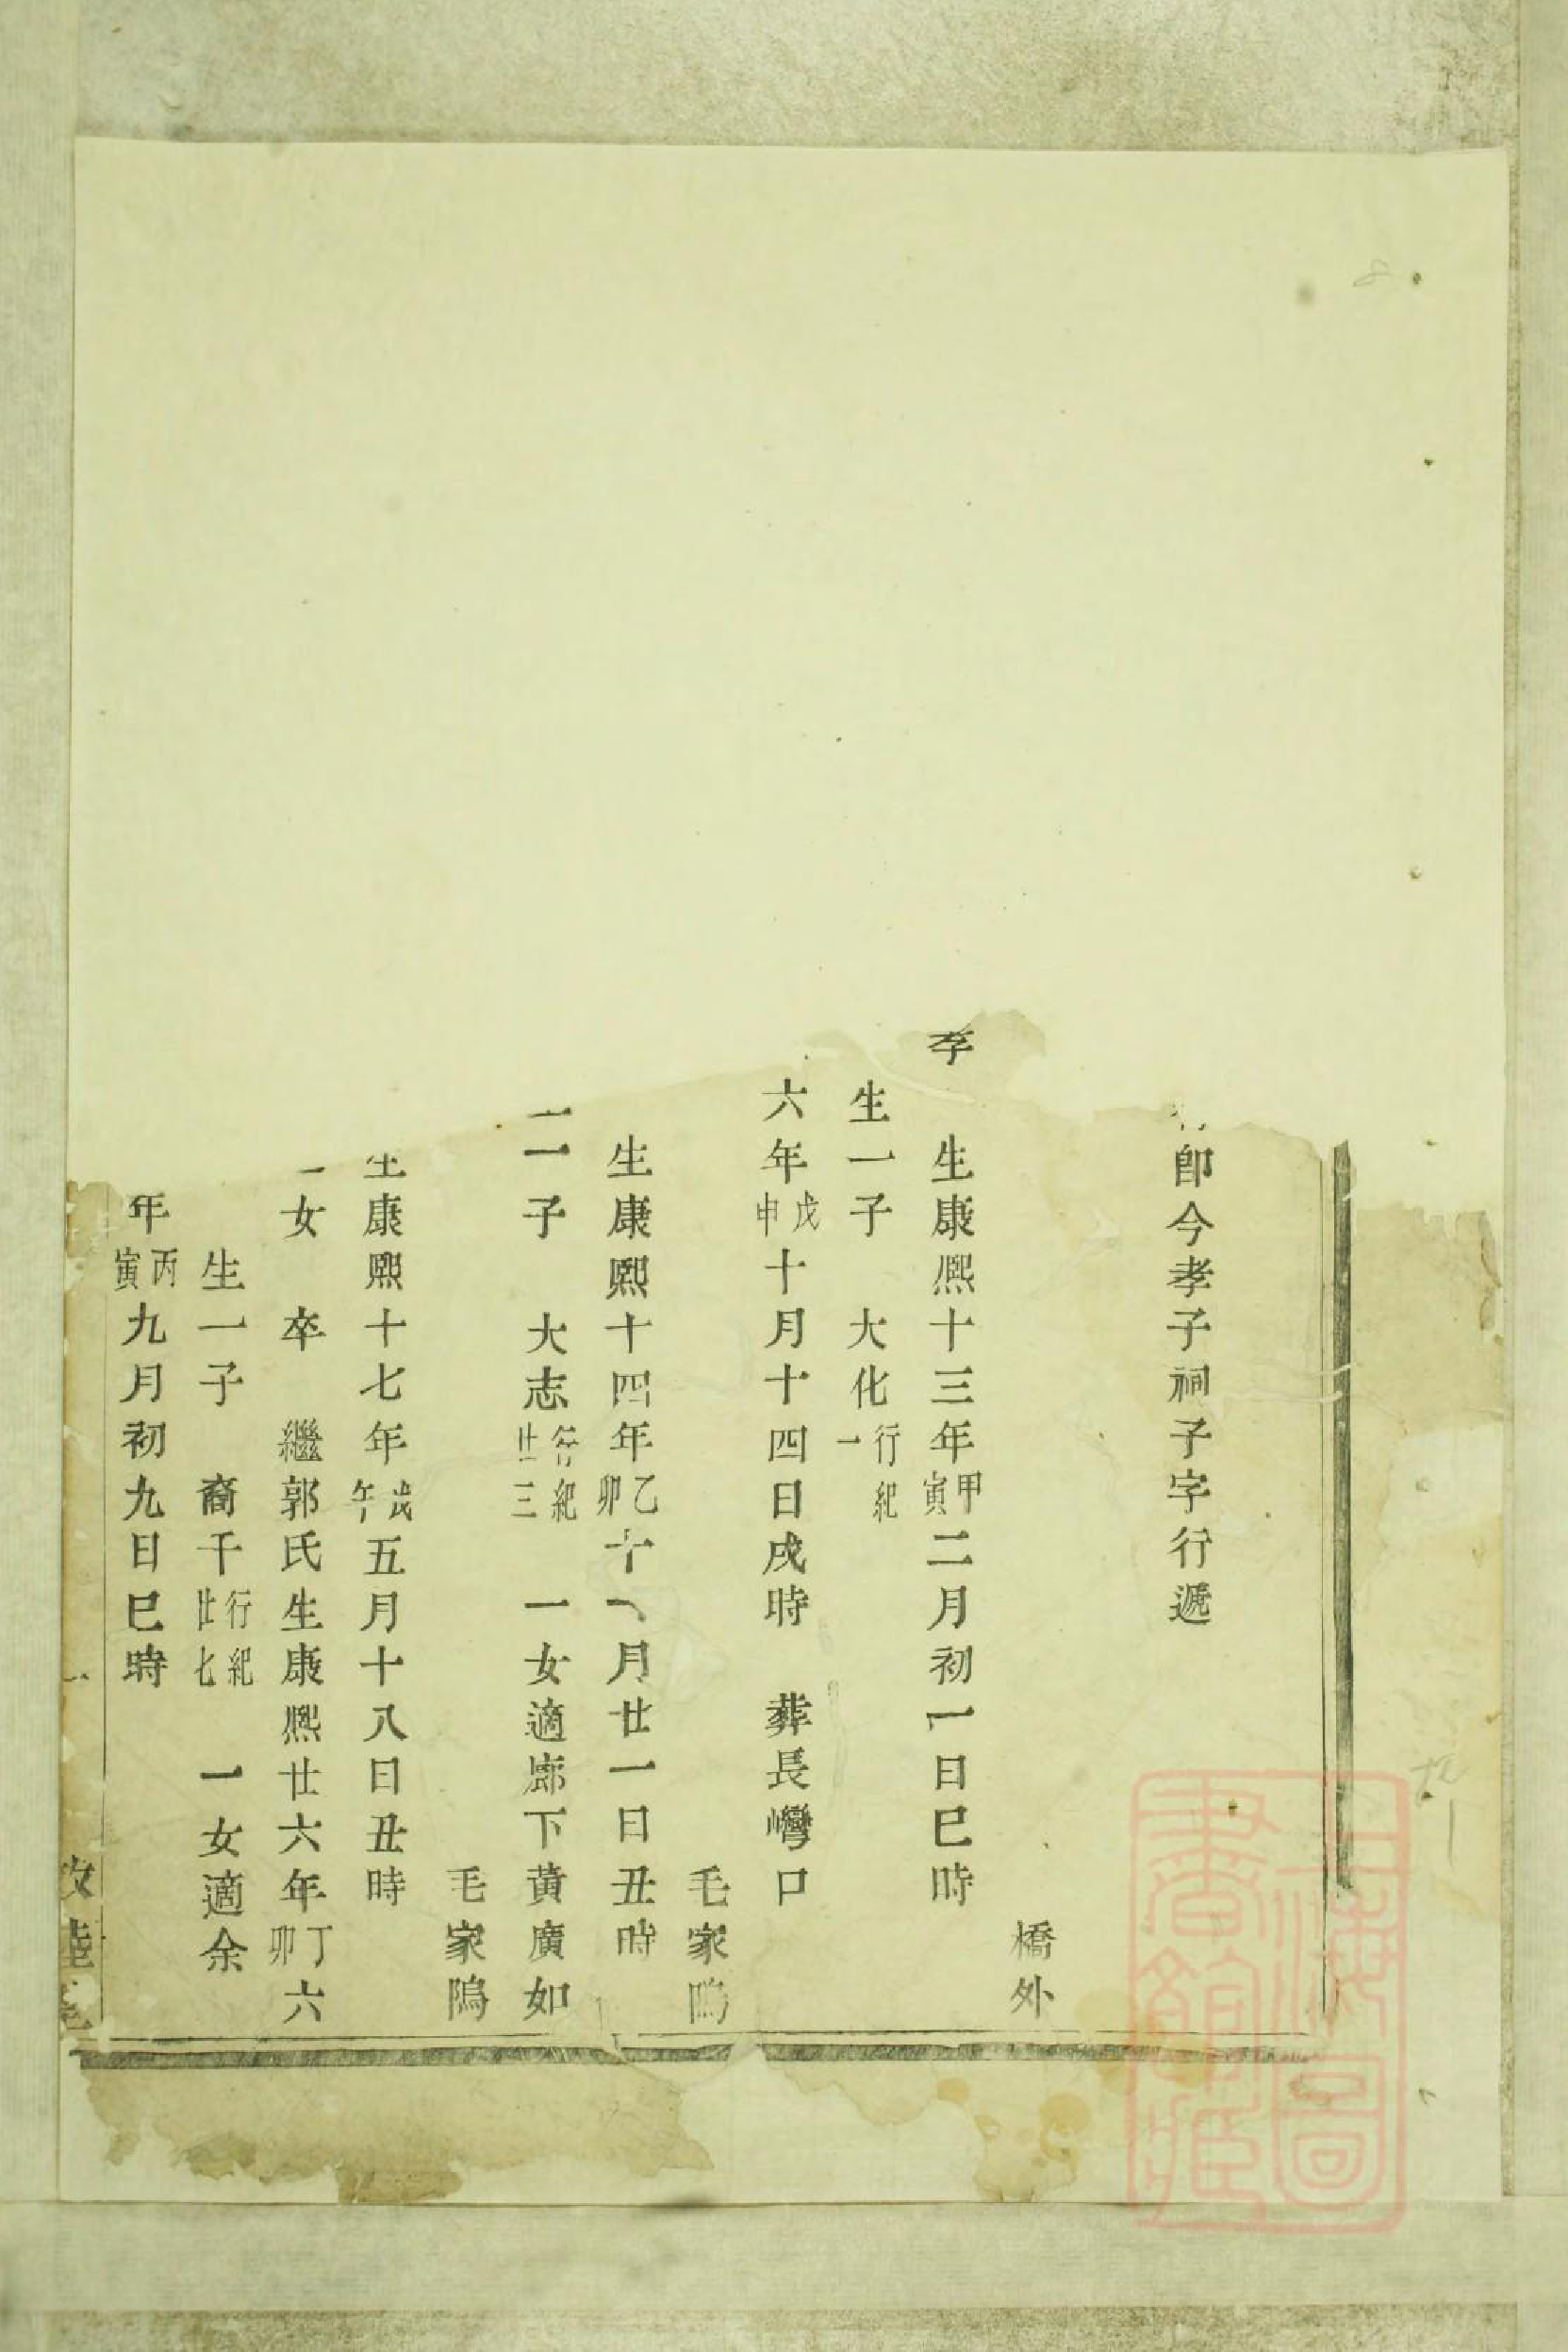 即今孝子祠子字行遞
橋外
孝 生康熙十三年甲寅二月初一日巳時
生一子 大化行紀一
六年戊申十月十四日戌時 葬長灣口
毛家隝
生康熙十四年乙卯十一月廿一日丑時
二子 大志行紀廿三 一女適廊下黃廣如
毛家隝
生康熙十七年戊午五月十八日丑時
一女 卒 繼郭氏生康熙廿六年丁卯六
生一子 裔千行紀廿七 一女適余
年丙寅九月初九日巳時